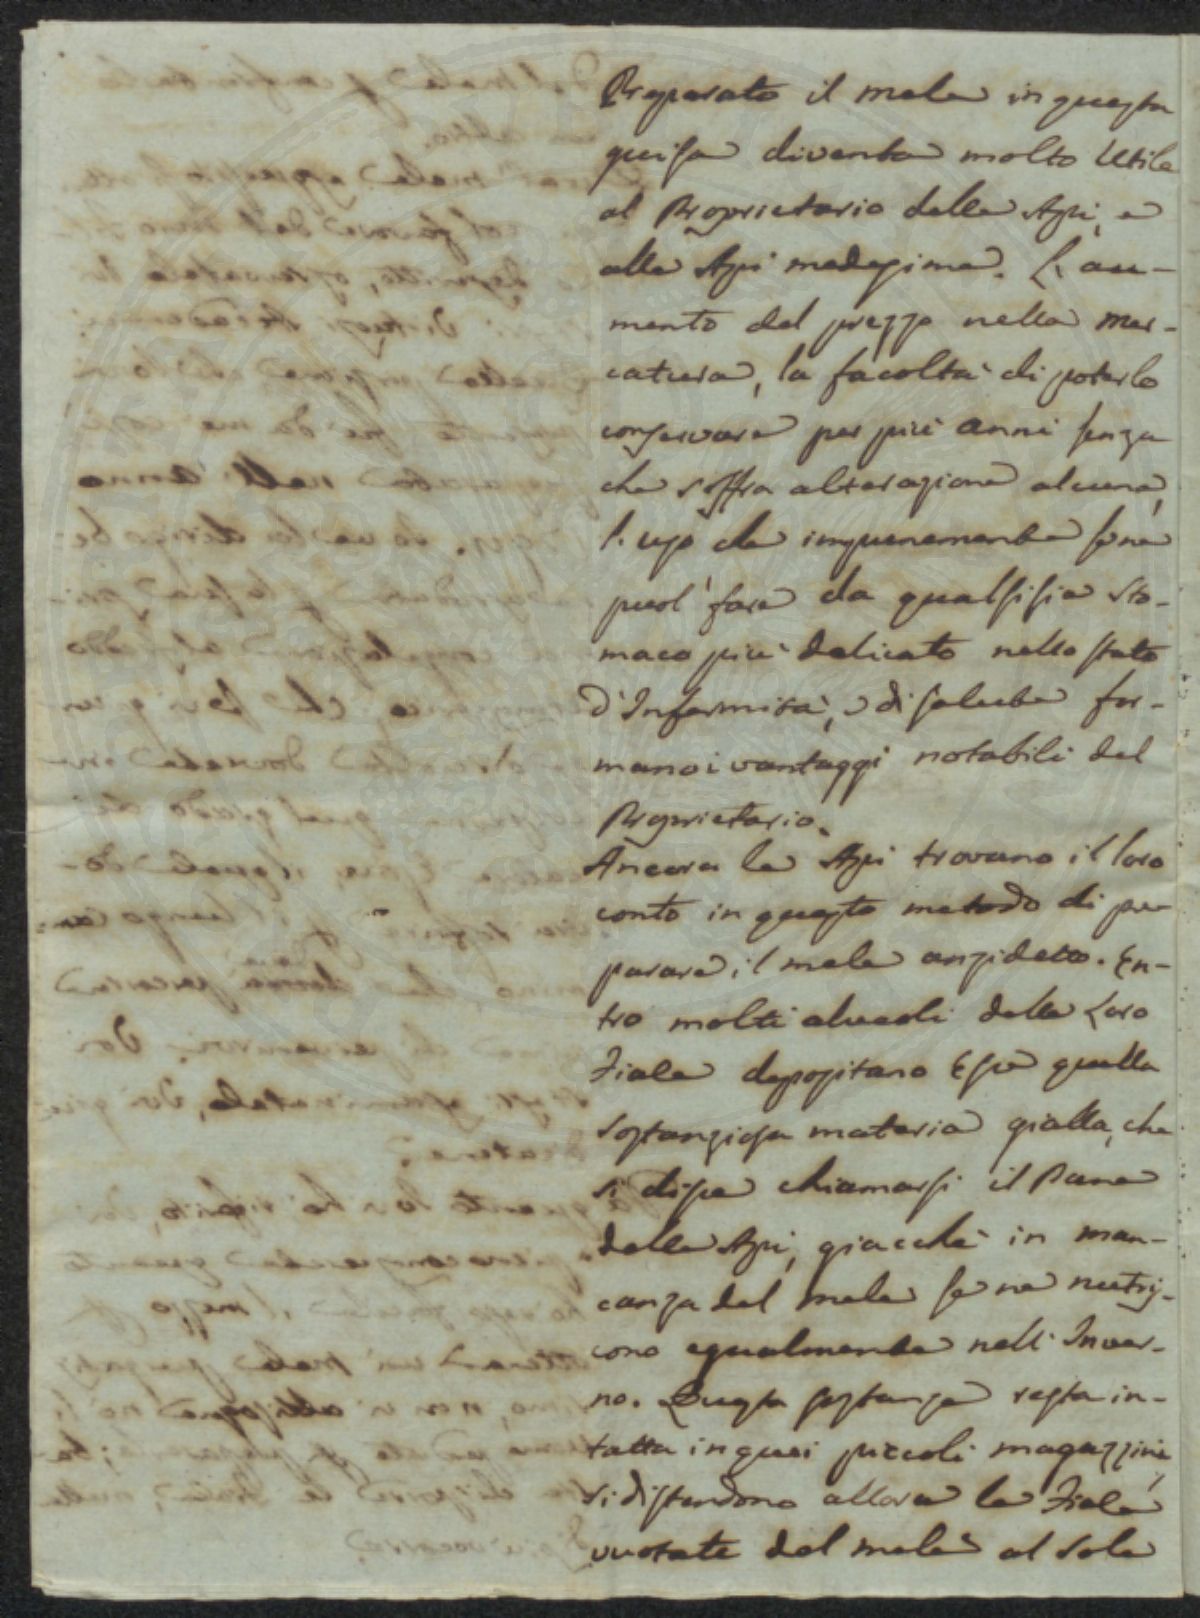 Preparato il mele in questa
guisa diventa molto Utile
al Proprietario delle Api, e
alle Api medesime. L'au-
mento del prezzo nella Mer-
catura, la facoltà di poterlo
conservare per più anni senza
che soffra alterazione alcuna,
l'uso che impunemente se ne
puol' fare da qualsisia sto-
maco più delicato nello stato
d'Infermità, e di salute for-
mano i vantaggi notabili del
Proprietario.
Ancora le Api trovano il loro
conto in questo metodo di pre-
parare il mele anzidetto. En-
tro molti alveoli delle Loro
Fiale depositano Esse quella
sostanziosa materia gialla, che
si disse chiamarsi il Pane
delle Api, giacchè in man-
canza del mele se ne nutris-
cono egualmente nell'Inver-
no. Questa sostanza resta in-
tatta in quei piccoli magazzini,
si distendono allora le Fiale
vuotate del mele al Sole